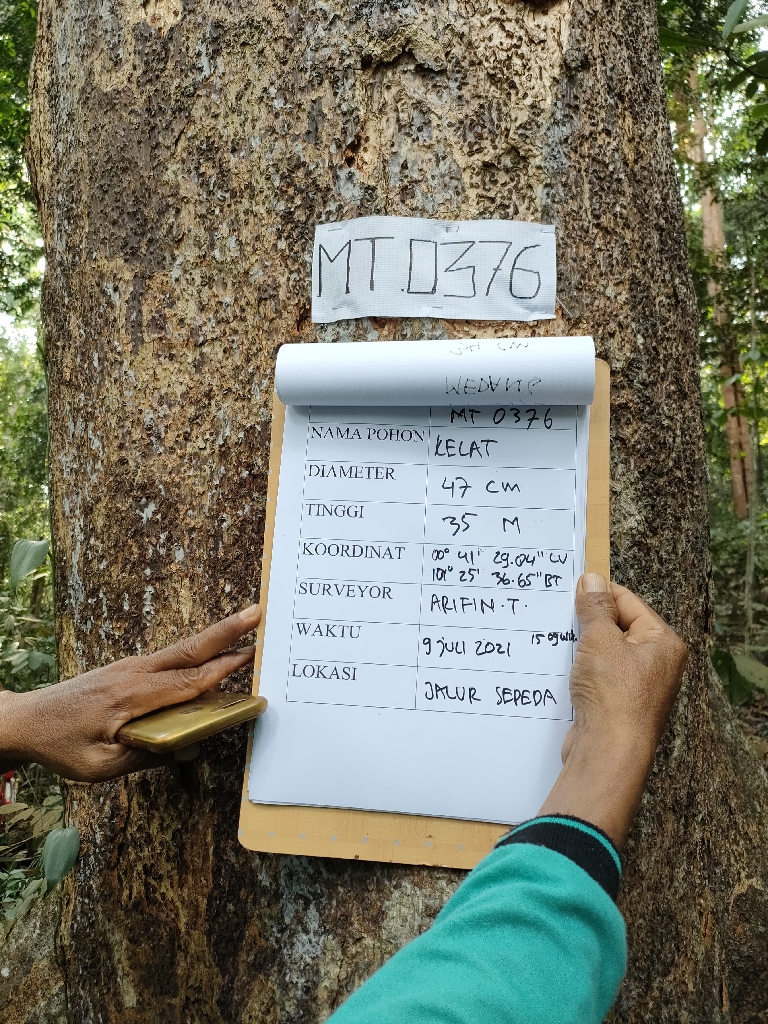 MT.0376
WEDUNG
MT 0376
NAMA POHON KELAT
DIAMETER 47 CM
TINGGI 35 M
KOORDINAT 00° 41' 29.04" LU
101° 25' 36.65" BT
SURVEYOR ARIFIN.T.
WAKTU 9 JULI 2021 15 09 WIB.
LOKASI JALUR SEPEDA